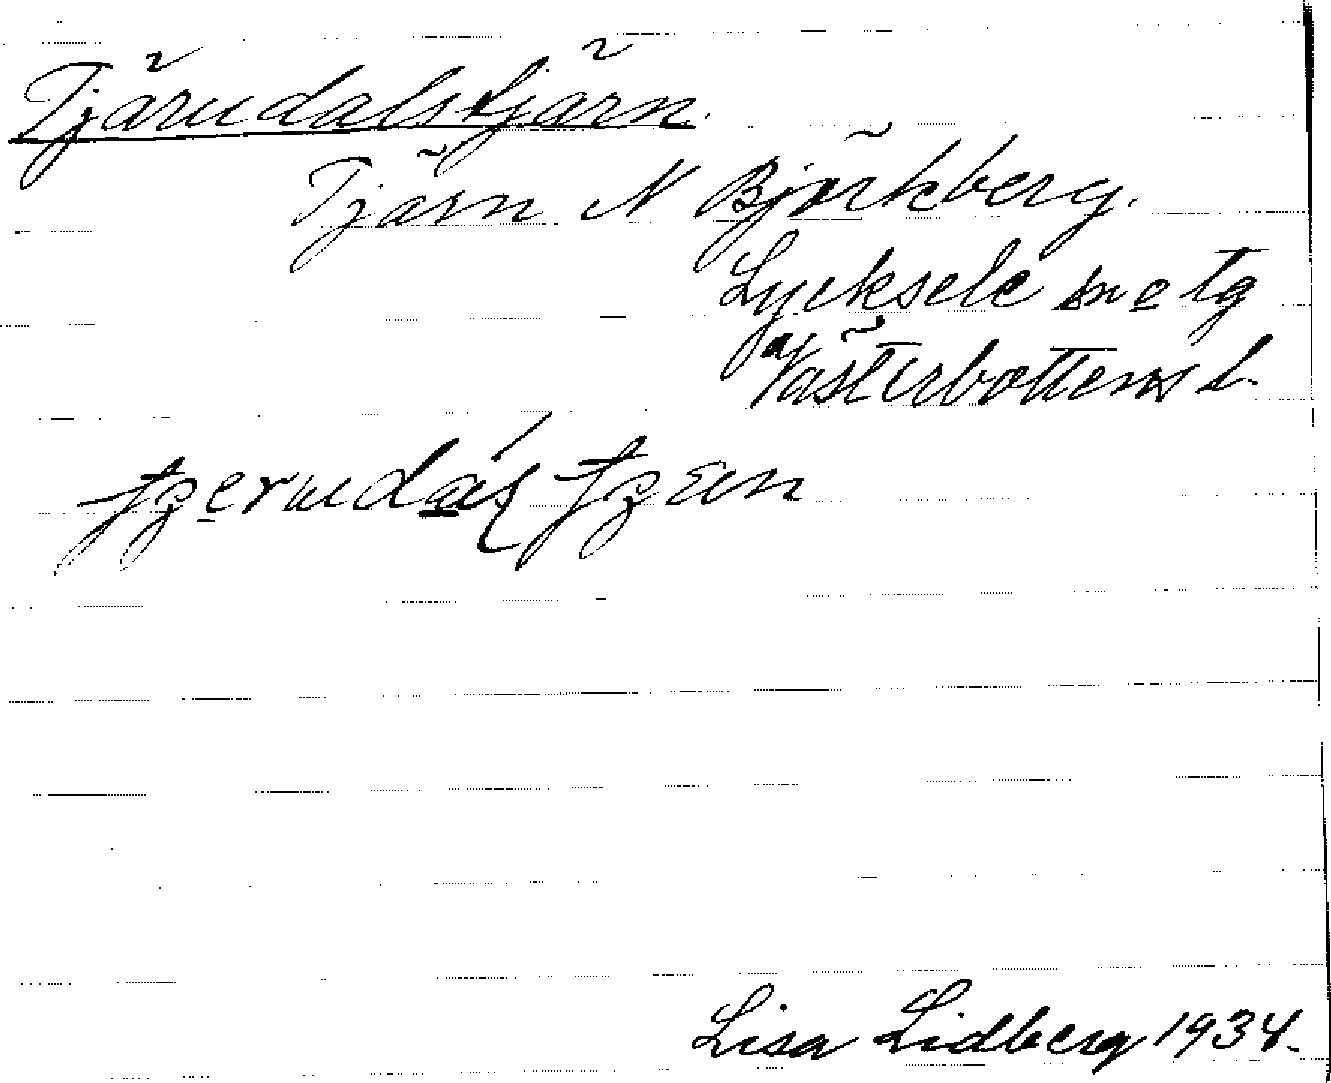 Tjärudalstjärn.
Tjärn N Björkberg.
Lycksele sn o tg
Västerbottens L.
Lisa Lidberg 1934.